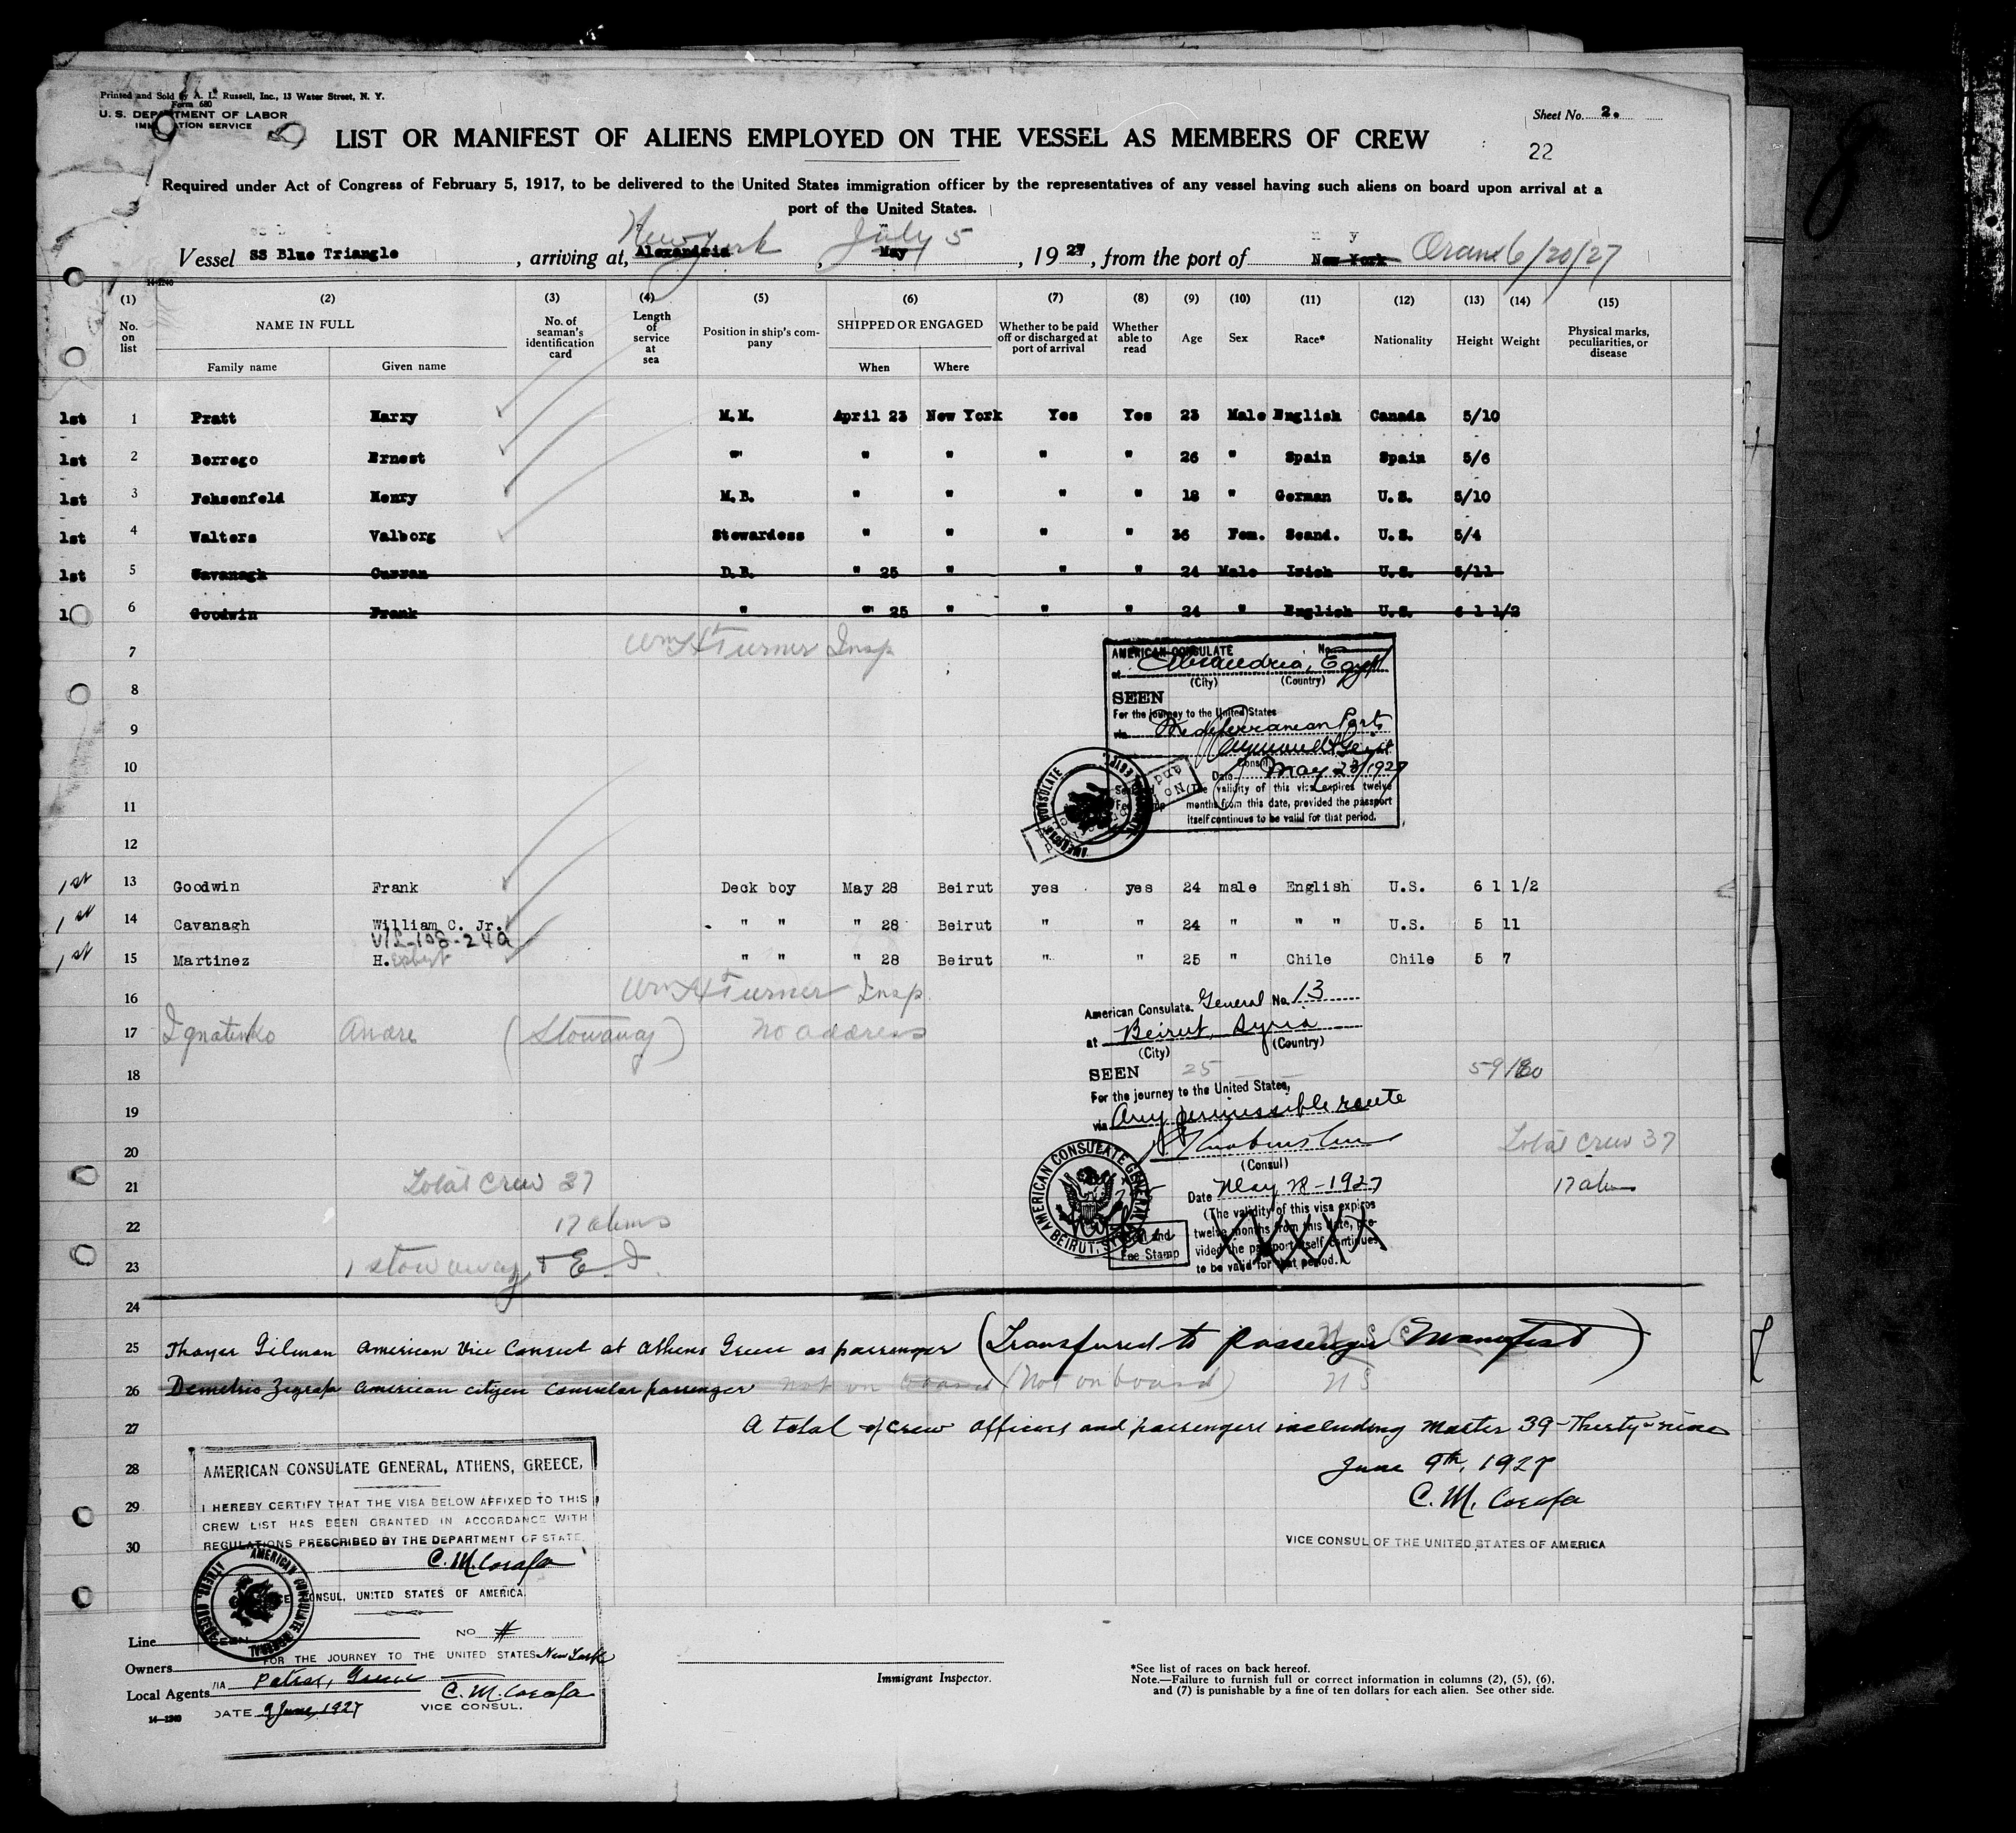 Printed and Sold by A. L. Russell, Inc., 13 Water Street, N. Y.
Form 680
U. S. DEPARTMENT OF LABOR
IMMIGRATION SERVICE
Sheet No. 2.
LIST OR MANIFEST OF ALIENS EMPLOYED ON THE VESSEL AS MEMBERS OF CREW
22
Required under Act of Congress of February 5, 1917, to be delivered to the United States immigration officer by the representatives of any vessel having such aliens on board upon arrival at a
port of the United States.
New York July 5
Vessel SS Blue Triangle, arriving at, Alexandria, May, 1927, from the port of New York Oran 6/20/27
14-1240
(1) (2) (3) (4) (5) (6) (7) (8) (9) (10) (11) (12) (13) (14) (15)
No. on list NAME IN FULL Family name Given name No. of seaman's identification card Length of service at sea Position in ship's company SHIPPED OR ENGAGED When Where Whether to be paid off or discharged at port of arrival Whether able to read Age Sex Race* Nationality Height Weight Physical marks, peculiarities, or disease
1st 1 Pratt Harry M.M. April 23 New York Yes Yes 23 Male English Canada 5/10
1st 2 Borrego Ernest " " " " " 26 " Spain Spain 5/6
1st 3 Fehsenfeld Henry M.B. " " " " 18 " German U.S. 5/10
1st 4 Walters Valborg Stewardess " " " " 36 Fem. Scand. U.S. 5/4
1st 5 Cavanagh Curran D.B. " 25 " " " 24 Male Irish U.S. 5/11
1 6 Goodwin Frank " " 25 " " " 24 " English U.S. 6 1 1/2
7 Wm H Turner Insp
8
9
10
11
12
AMERICAN CONSULATE No.
at Alexandria, Egypt
(City) (Country)
SEEN
For the journey to the United States
via Mediterranean Ports
Consul
Date May 23/1927
(The validity of this visa expires twelve
months from this date, provided the passport
itself continues to be valid for that period.
AMERICAN CONSULATE
1st 13 Goodwin Frank Deck boy May 28 Beirut yes yes 24 male English U.S. 6 1 1/2
1st 14 Cavanagh William C. Jr. " " " 28 Beirut " " 24 " " " U.S. 5 11
1st 15 Martinez H. " " " 28 Beirut " " 25 " Chile Chile 5 7
16 Wm H Turner Insp.
17 Ignatenko Andre (Stowaway) no address
18 25 59
19
20 Total Crew 37
21 Total Crew 37 17 aliens
22 17 aliens
23 1 stowaway
24
American Consulate General No. 13
at Beirut, Syria
(City) (Country)
SEEN
For the journey to the United States,
via Any permissible route
(Consul)
Date May 28-1927
(The validity of this visa expires
twelve months from this date, pro-
vided the passport itself continues
to be valid for that period.
AMERICAN CONSULATE GENERAL BEIRUT, SYRIA
Fee Stamp
25 Thayer Gilman American Vice Consul at Athens Greece as passenger (Transfured to passenger Manifest)
26 Demetrio Zografo American citizen Consular passenger not on board (Not on board) N S
27 A total of crew officers and passengers including Master 39-Thirty-nine
28 June 9th, 1927
29 C. M. Corafa
30 VICE CONSUL OF THE UNITED STATES OF AMERICA
AMERICAN CONSULATE GENERAL, ATHENS, GREECE.
I HEREBY CERTIFY THAT THE VISA BELOW AFFIXED TO THIS
CREW LIST HAS BEEN GRANTED IN ACCORDANCE WITH
REGULATIONS PRESCRIBED BY THE DEPARTMENT OF STATE.
C. M. Corafa
CONSUL, UNITED STATES OF AMERICA.
AMERICAN CONSULATE GENERAL ATHENS, GREECE
NO #
SEEN
FOR THE JOURNEY TO THE UNITED STATES New York
VIA Patras, Greece C. M. Corafa
DATE 9 June, 1927 VICE CONSUL.
Line
Owners
Local Agents
14-1240
Immigrant Inspector.
*See list of races on back hereof.
Note.—Failure to furnish full or correct information in columns (2), (5), (6),
and (7) is punishable by a fine of ten dollars for each alien. See other side.